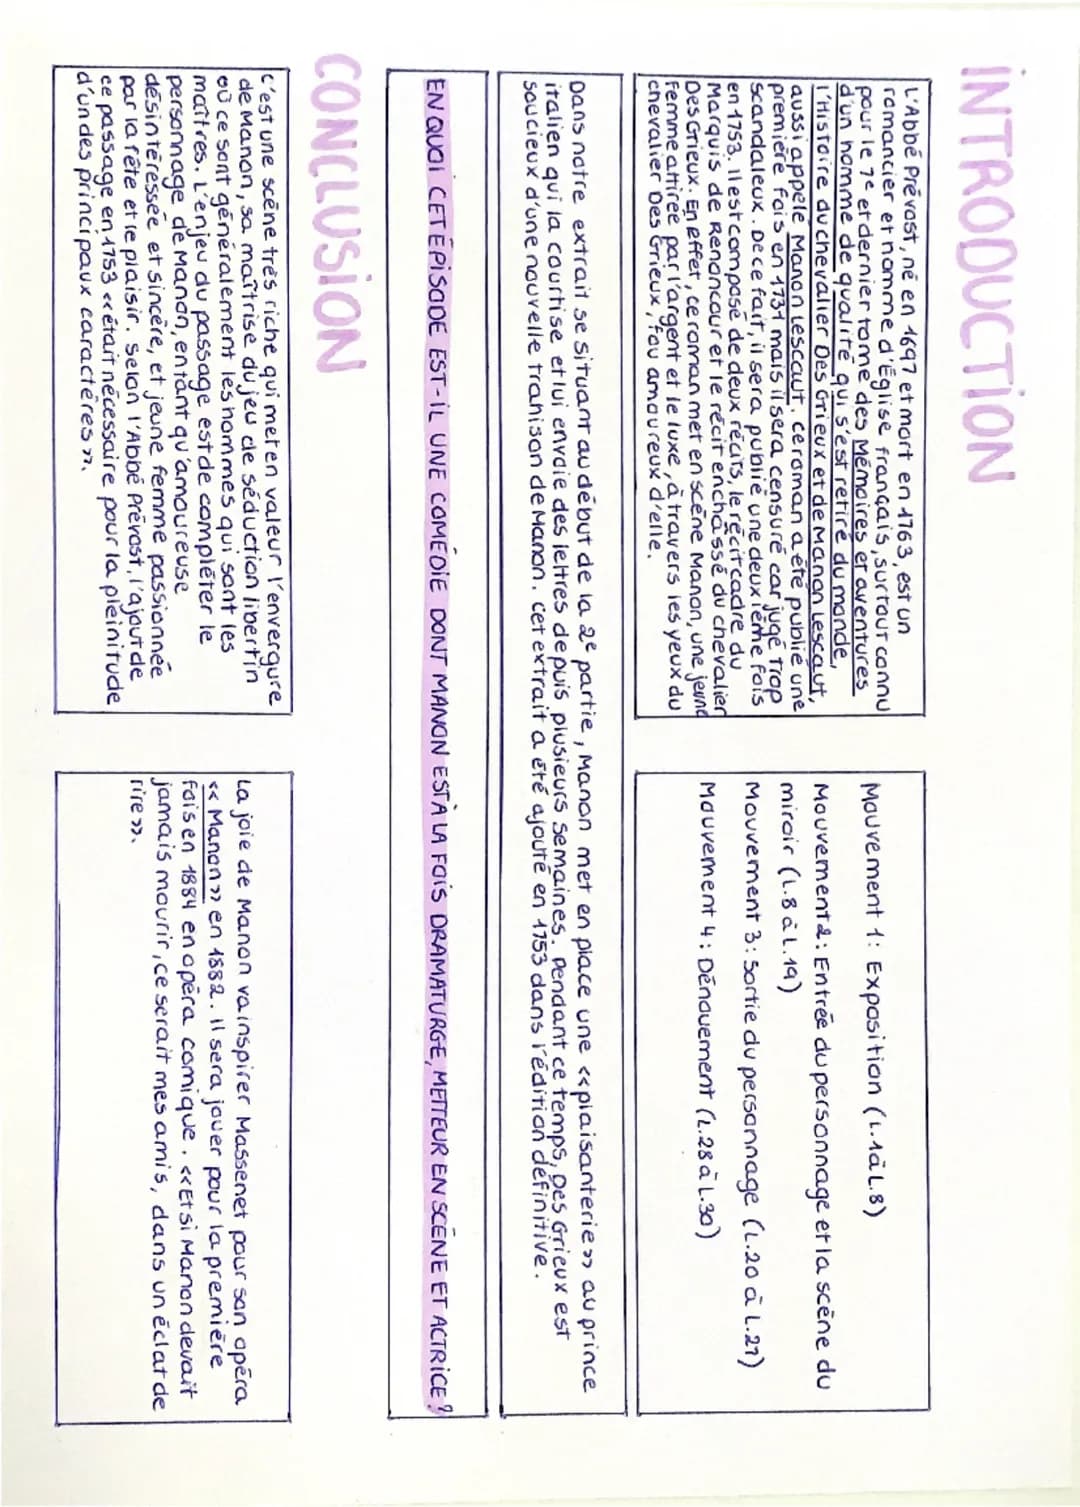 INTRODUCTION
L'Abbé Prévost, né en 1697 et mort en 1763, est un
romancier et homme d'Église français, surtout connu
pour le 7e et dernier tome des Mémoires et aventures
d'un homme de qualité qui s'est retiré du monde,
l'Histoire du chevalier Des Grieux et de Manon Lescaut,
aussi appelé Manon Lescaut. Ce roman a été publié une
première fois en 1731 mais il sera censuré car jugé trop
scandaleux. De ce fait, il sera publié une deuxième fois
en 1753. Il est composé de deux récits, le récit cadre du
Marquis de Renoncour et le récit enchâssé du chevalier
Des Grieux. En effet, ce roman met en scène Manon, une jeune
femme attirée par l'argent et le luxe, à travers les yeux du
chevalier Des Grieux, fou amoureux d'elle.
Mouvement 1 : Exposition (L.1 à L.8)
Mouvement 2 : Entrée du personnage et la scène du
miroir (L.8 à L.19)
Mouvement 3 : Sortie du personnage (L.20 à L.27)
Mouvement 4 : Dénouement (L.28 à L.30)
Dans notre extrait se situant au début de la 2e partie, Manon met en place une <<plaisanterie>> au prince
italien qui la courtise et lui envoie des lettres depuis plusieurs semaines. Pendant ce temps, Des Grieux est
soucieux d'une nouvelle trahison de Manon. Cet extrait a été ajouté en 1753 dans l'édition définitive.
EN QUOI CET ÉPISODE EST-IL UNE COMÉDIE DONT MANON EST À LA FOIS DRAMATURGE, METTEUR EN SCÈNE ET ACTRICE ?
CONCLUSION
C'est une scène très riche qui met en valeur l'envergure
de Manon, sa maîtrise du jeu de séduction libertin
où ce sont généralement les hommes qui sont les
maîtres. L'enjeu du passage est de compléter le
personnage de Manon, entant qu'amoureuse
désintéressée et sincère, et jeune femme passionnée
par la fête et le plaisir. Selon l'Abbé Prévost, l'ajout de
ce passage en 1753 <<était nécessaire pour la plénitude
d'un des principaux caractères>>.
La joie de Manon va inspirer Massenet pour son opéra
<<Manon>> en 1882. Il sera jouer pour la première
fois en 1884 en opéra comique. <<Et si Manon devait
jamais mourir, ce serait mes amis, dans un éclat de
rire>>.